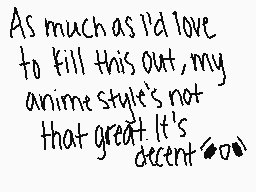 As much as I'd love
to fill this out, my
anime style's not
that great. It's
decent